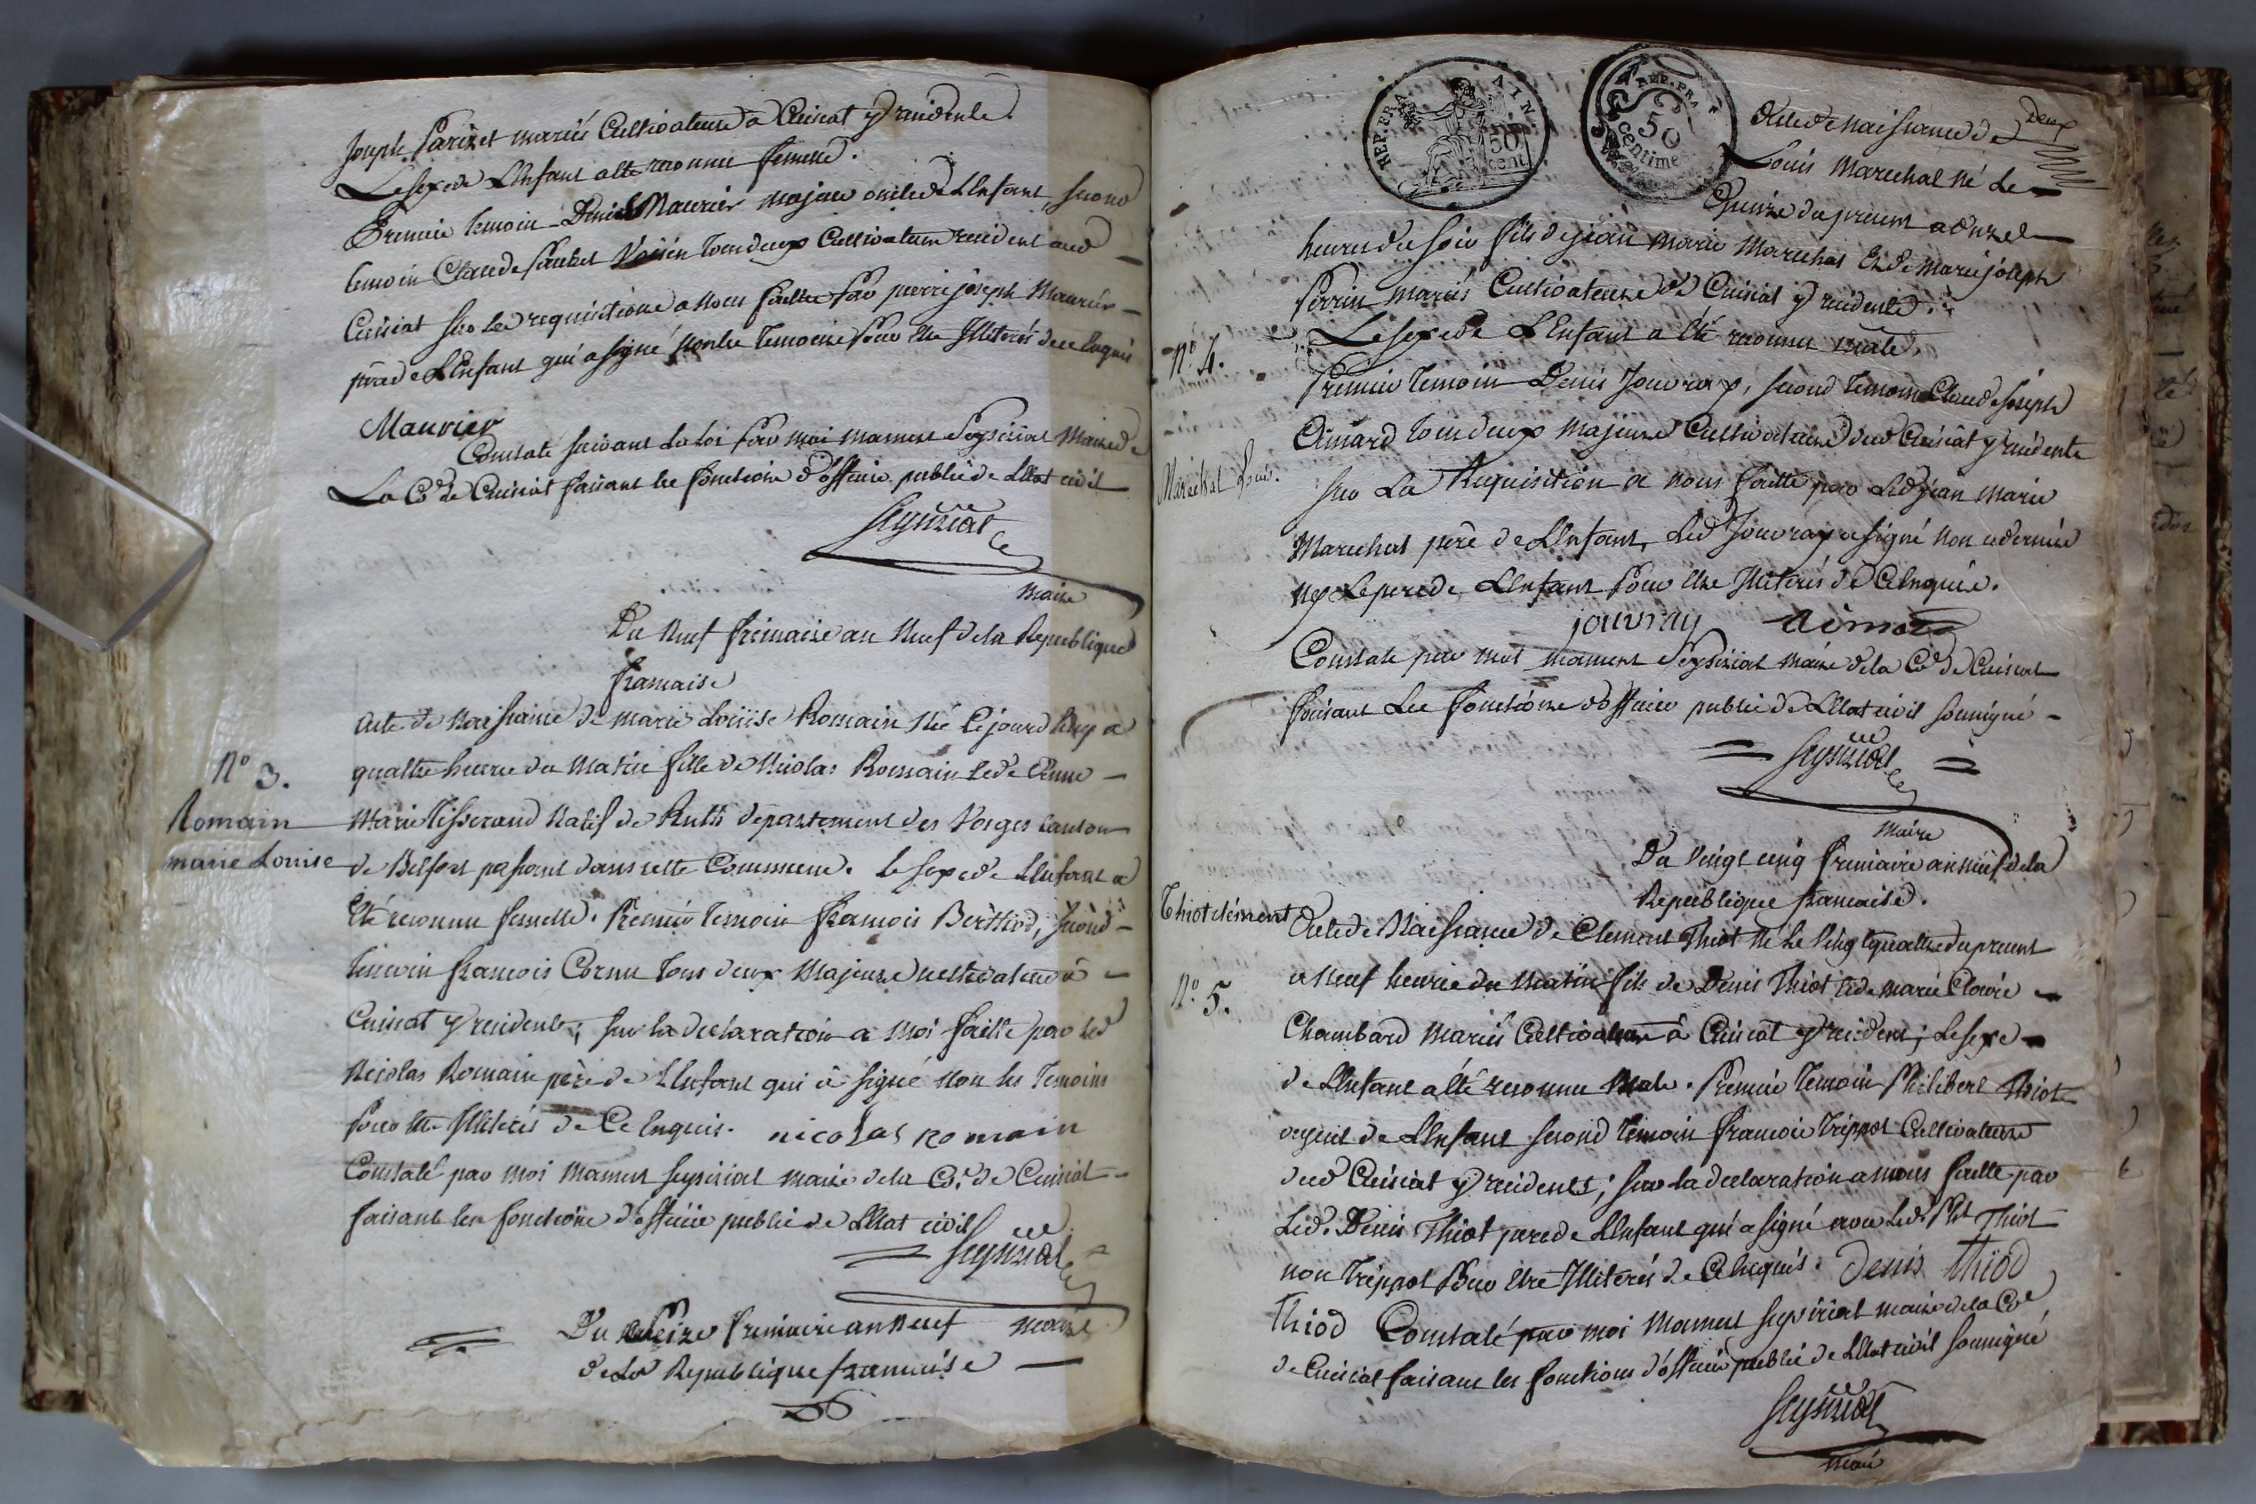 Joseph Parizet mariés Cultivateurs a Cuisiat y residents.
Le sexe de L'Enfant a été reconnu femelle.
Premier temoin Denis Maurier majeur oncle de L'Enfant, second
temoin Claude Voisin tous deux Cultivateurs residents aud
Cuisiat sur les requisitions a nous faittes par pierre joseph Maurier
père de L'Enfant qui a signé non les Temoins pour être Illiterés de ce Enquis
Maurier
Constaté suivant la Loi par moi mamert Seyssiat Maire de
La Cne de Cuisiat faisant les fonctions d'officier public de L'Etat civil
Maire
Du Neuf frimaire an Neuf de la Republique
francaise
N° 3.
Romain
marie Louise
Acte de Naissance de marie Loüise Romain Née Ce jourd'huy a
quattre heures du Matin fille de Nicolas Romain Et de Anne
Marie Tisserand Natif de Rutti departement des Vosges Canton
de Belfort passant dans cette Commune. Le sexe de L'Enfant a
Eté reconnu femelle. Premier Temoin francois Berthod, second
Temoin francois Cornu tous deux Majeurs Cultivateurs à
Cuisiat y residents, sur la declaration a Moi faitte par led
Nicolas Romain père de L'Enfant qui à signé Non les Temoins
pour être Illiterés de Ce Enquis. nicolas romain
Constaté par moi Mamert Seyssiat maire de la Cne de Cuisiat
faisant les fonctions d'officier public de L'Etat civil
Maire
Du Seize frimaire an Neuf
de La Republique francaise
REP. FRA. AIN
50 cent
REP. FRA.
50
centime
Deux
Acte de Naissance de
Louis Marechal Né Le
Quinze du present a Onze
heures du soir fils de jean marie Marechal Et de Marie joseph
Perrin Mariés Cultivateurs de Cuisiat y residents.
N° 4.
Marechal Louis.
Le sexe de L'Enfant a été reconnu male.
Premier Temoin Denis Jouvray, second temoin Claude joseph
Aimard tous deux Majeurs Cultivateurs dud Cuisiat y residents
sur La Requisition a nous faitte par Led jean Marie
Marechal père de L'Enfant, Led Jouvray a signé Non ce dernier
Ny Le pere de L'Enfant pour être Illiterés de Ce Enquis.
jouvray
Constaté par moi mamert Seyssiat maire de la Cne de Cuisiat
faisant Les fonctions d'officier public de L'Etat civil soussigné
Maire
Du Vingt cinq frimaire an neuf de la
Republique francaise.
Thiot clément
N° 5.
Acte de Naissance de Clement Thiot Né Le Vingt quattre du present
a Neuf heures du Matin fils de Denis Thiot Et de Marie Claire
Chambard Mariés Cultivateurs à Cuisiat y resident; Le sexe
de L'Enfant a été reconnu Male. Premier Temoin Philibert Thiot
ayeul de L'Enfant second temoin francois Trippot Cultivateurs
dud Cuisiat y residents; sur la declaration a nous faitte par
Led. Denis Thiot pere de L'Enfant qui a signé avec Led Pht Thiot
non Trippot pour être Illiterés de Ce Enquis. Denis thiod
Thiod Constaté par moi Mamert Seyssiat maire de la Cne
de Cuisiat faisant les fonctions d'officier public de L'Etat civil soussigné
Maire